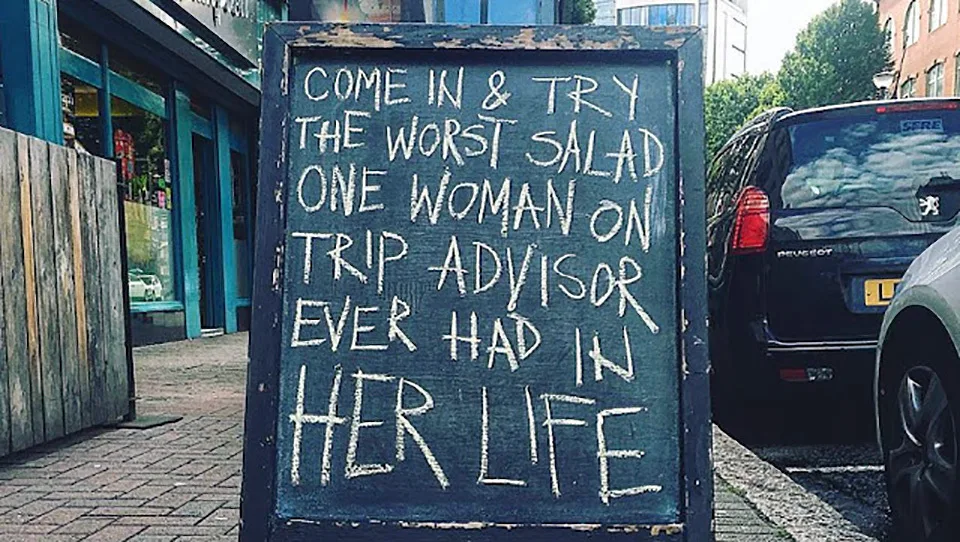 COME IN & TRY
THE WORST SALAD
ONE WOMAN ON
TRIP ADVISOR
EVER HAD IN
HER LIFE
PEUGEOT